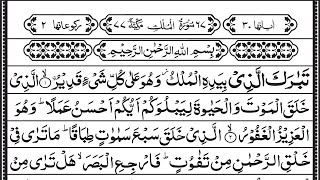 اٰیاتها ٣٠ ٦٧ سُوۡرَةُ الۡمُلۡكِ مَكِّیَّةٌ ٧٧ رکوعاتها ٢
بِسۡمِ اللهِ الرَّحۡمٰنِ الرَّحِیۡمِ
تَبٰرَكَ الَّذِیۡ بِیَدِهِ الۡمُلۡكُ٘ وَهُوَ عَلٰی كُلِّ شَیۡءٍ قَدِیۡرُۨ ۙ﴿۱﴾ الَّذِیۡ
خَلَقَ الۡمَوۡتَ وَالۡحَیٰوةَ لِیَبۡلُوَكُمۡ اَیُّكُمۡ اَحۡسَنُ عَمَلًا ؕ وَهُوَ
الۡعَزِیۡزُ الۡغَفُوۡرُ ۙ﴿۲﴾ الَّذِیۡ خَلَقَ سَبۡعَ سَمٰوٰتٍ طِبَاقًا ؕ مَا تَرٰی فِیۡ
خَلۡقِ الرَّحۡمٰنِ مِنۡ تَفٰوُتٍ ؕ فَارۡجِعِ الۡبَصَرَ ۙ هَلۡ تَرٰی مِنۡ